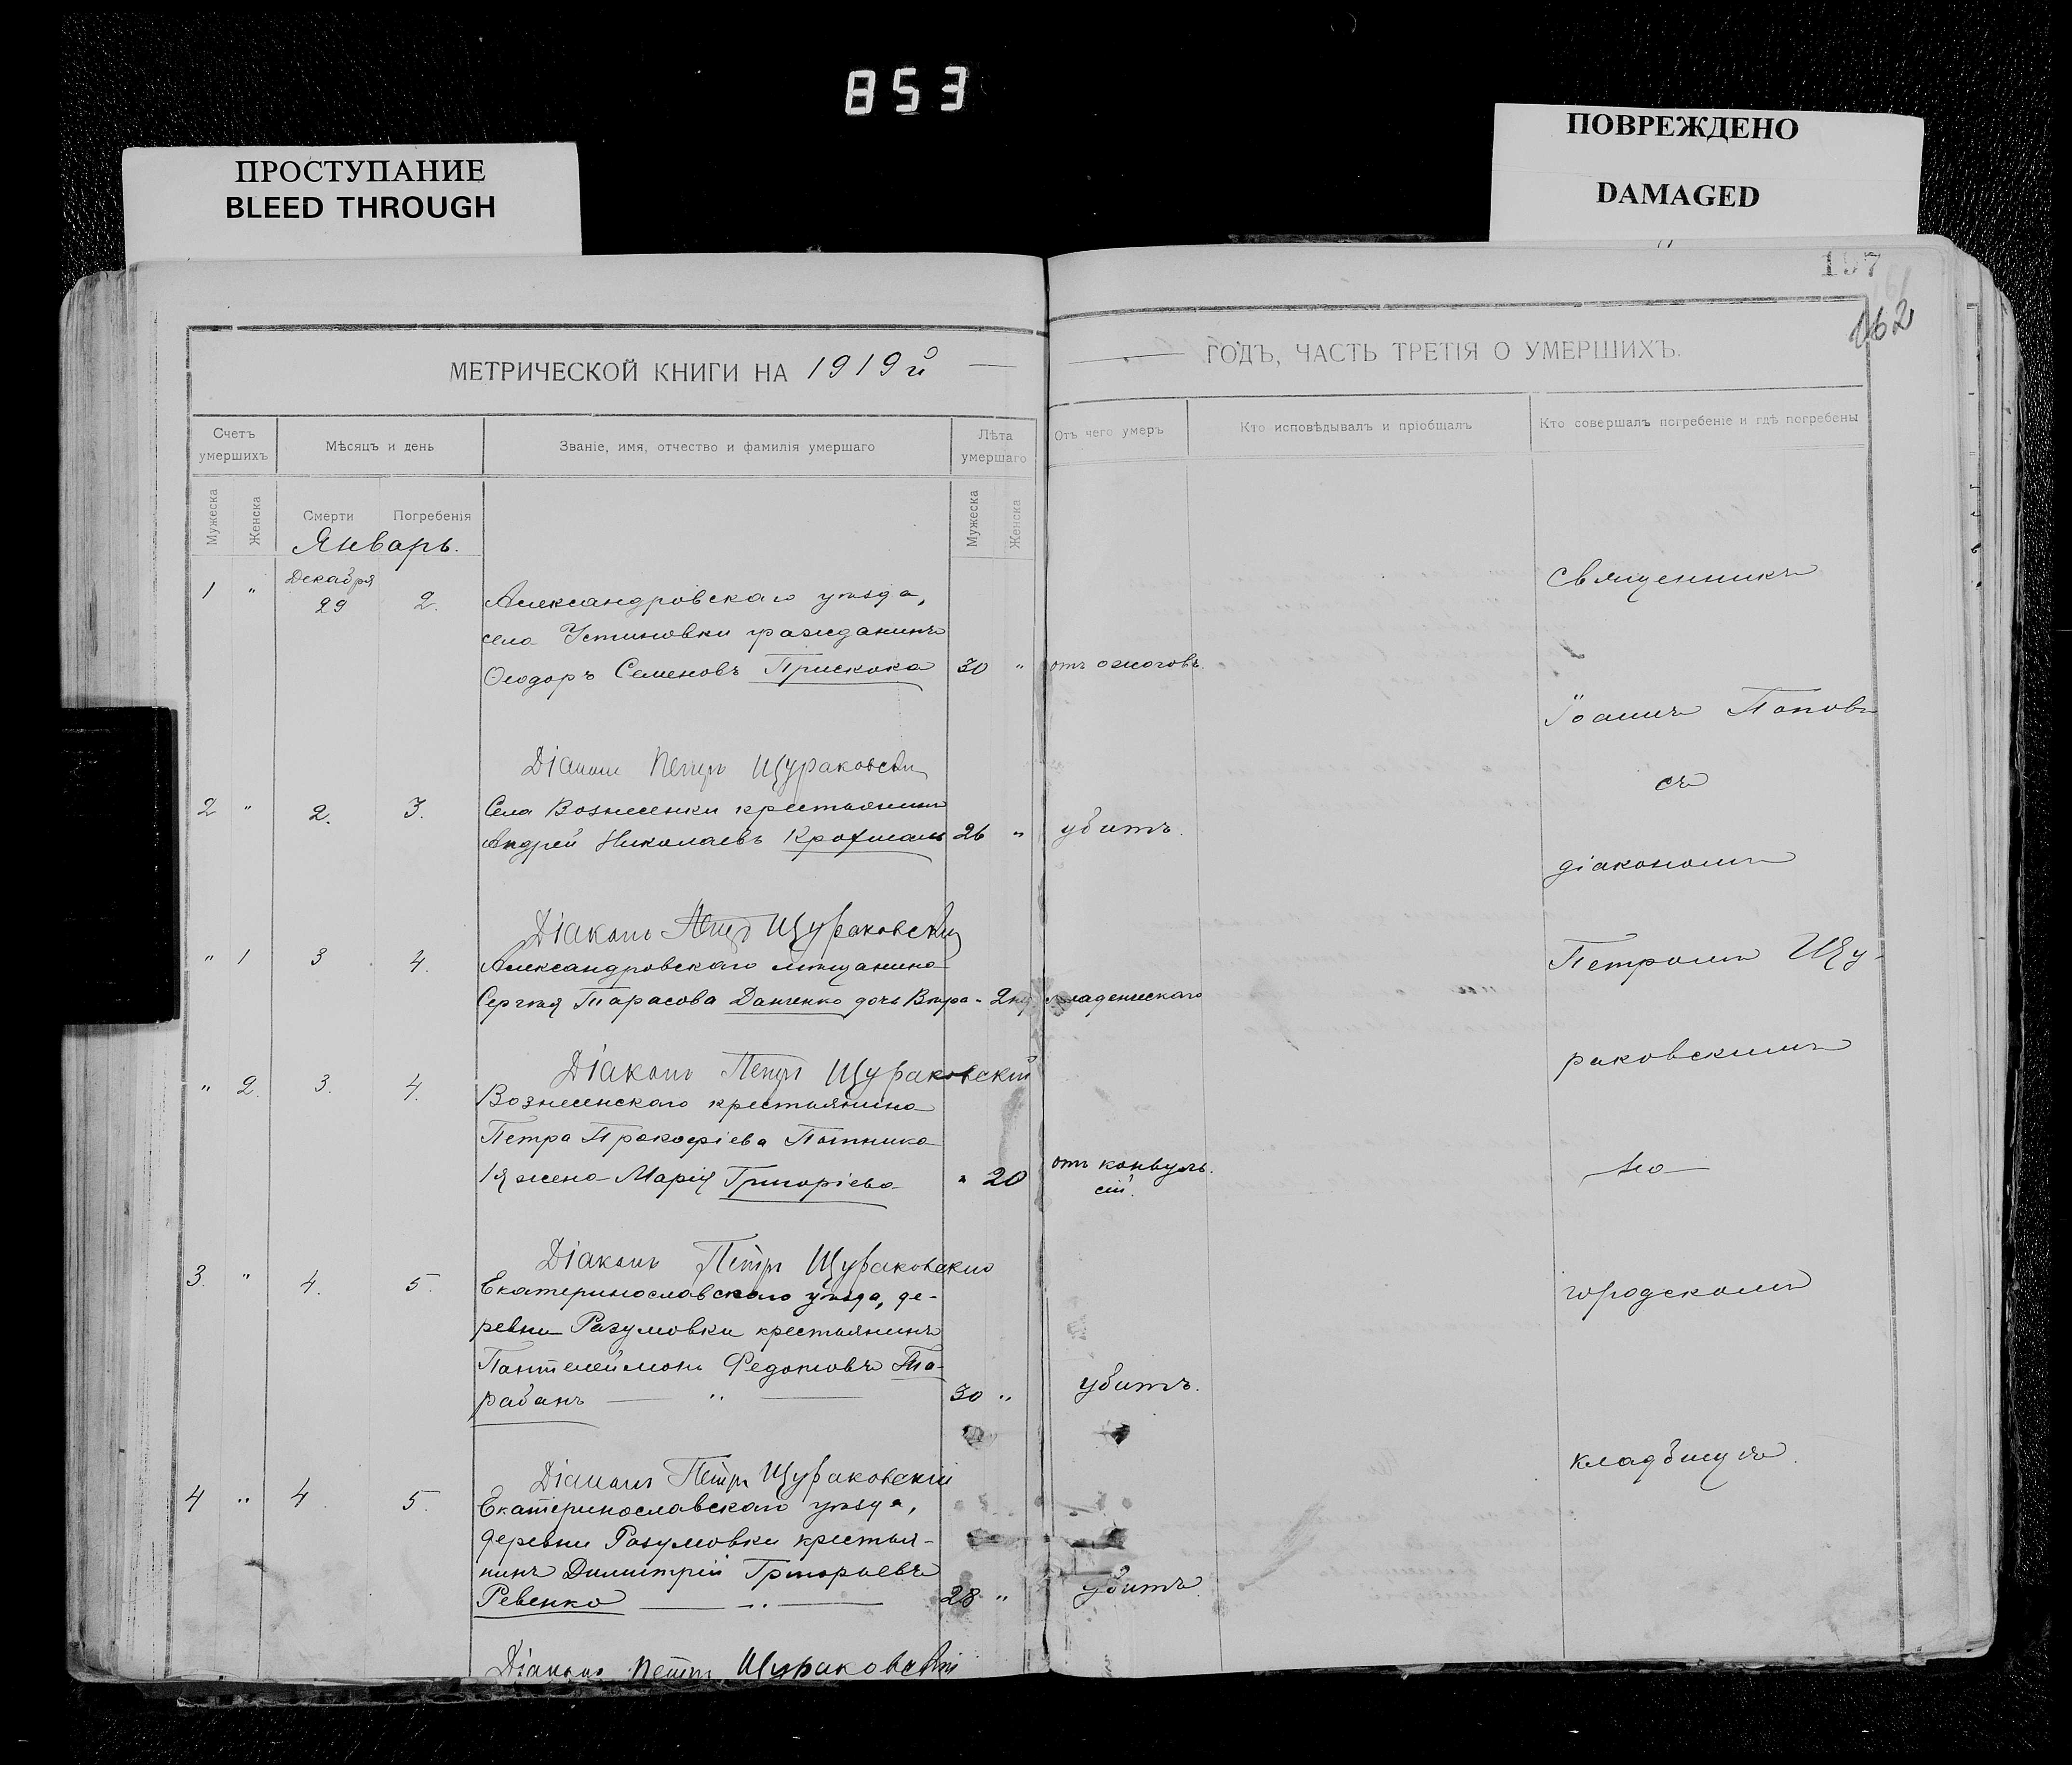 853
ПРОСТУПАНИЕ
BLEED THROUGH
ПОВРЕЖДЕНО
DAMAGED
197
162
МЕТРИЧЕСКОЙ КНИГИ НА 1919й
ГОДЪ, ЧАСТЬ ТРЕТІЯ О УМЕРШИХЪ.
Счетъ умершихъ
Мѣсяцъ и день
Званіе, имя, отчество и фамилія умершаго
Лѣта умершаго
Отъ чего умеръ
Кто исповѣдывалъ и пріобщалъ
Кто совершалъ погребеніе и гдѣ погребены
Мужеска
Женска
Смерти
Погребенія
Мужеска
Женска
Январь.
1 " Декабря 29 2. Александровскаго уѣзда,
села Устиновки гражданинъ
Ѳеодоръ Семеновъ Прискока 30 " отъ ожоговъ.
Діаконъ Петръ Щураковскій
2 " 2. 3. Села Вознесенки крестьянинъ
Андрей Николаевъ Крохмаль 26 " убитъ.
Діаконъ Петръ Щураковскій
" 1 3 4. Александровскаго мѣщанина
Сергѣя Тарасова Данченко дочь Вѣра " младенческаго
Діаконъ Петръ Щураковскій
" 2. 3. 4. Вознесенскаго крестьянина
Петра Прокофіева
жена Марія Григоріева " 20 отъ конвуль-
сій.
Діаконъ Петръ Щураковскій
3. " 4. 5. Екатеринославскаго уѣзда, де-
ревни Разумовки крестьянинъ
Пантелеймонъ Федотовъ Та-
рабанъ — " — 30 " убитъ.
Діаконъ Петръ Щураковскій
4 " 4. 5. Екатеринославскаго уѣзда,
деревни Разумовки крестья-
нинъ Димитрій Григорьевъ
Ревенко — " — 28 " убитъ.
Діаконъ Петръ Щураковскій
Священникъ
Іоаннъ Поповъ
съ
діакономъ
Петромъ Щу-
раковскимъ
на
городскомъ
кладбищѣ.